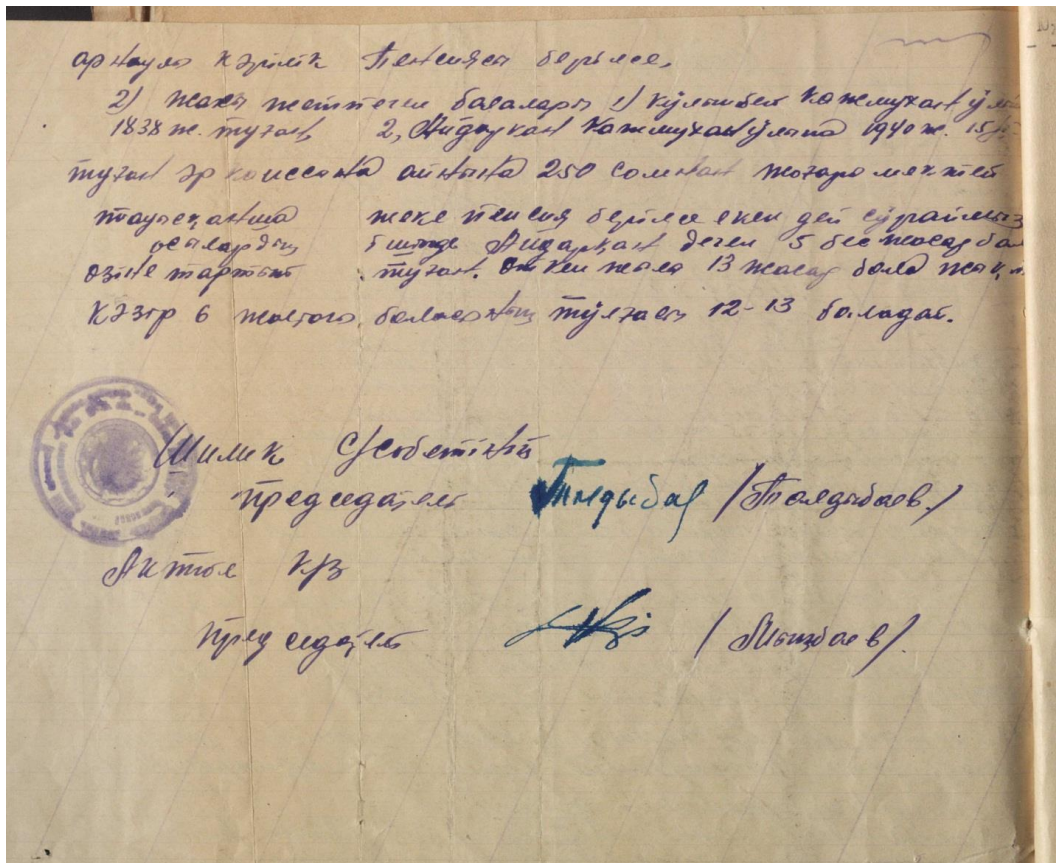 арнаулы кәрілік Пенсиясы берілсе,
2) жасы жетпеген балалары 1) Күлəнбек Кожмуханұлы
1938 ж. туган, 2, Айдархан Кожмуханұлына 1940 ж. 15/
туган әр коиссона айнына 250 сомнан жогаро мектеп
тауысқанша жеке пенсия берілсе екен деп сұраймыз
осылардың ішінде Айдарқан деген 5 бес жасар бала
өзіне тартып туган. Өткен жыла 13 жасар бала
Кәзір 6 жастого баланың тұлғасы 12-13 баладай.
Шилик С/Советінің
председатель Толдыбай /Толдыбаев./
Актоғ к/з
председатель /